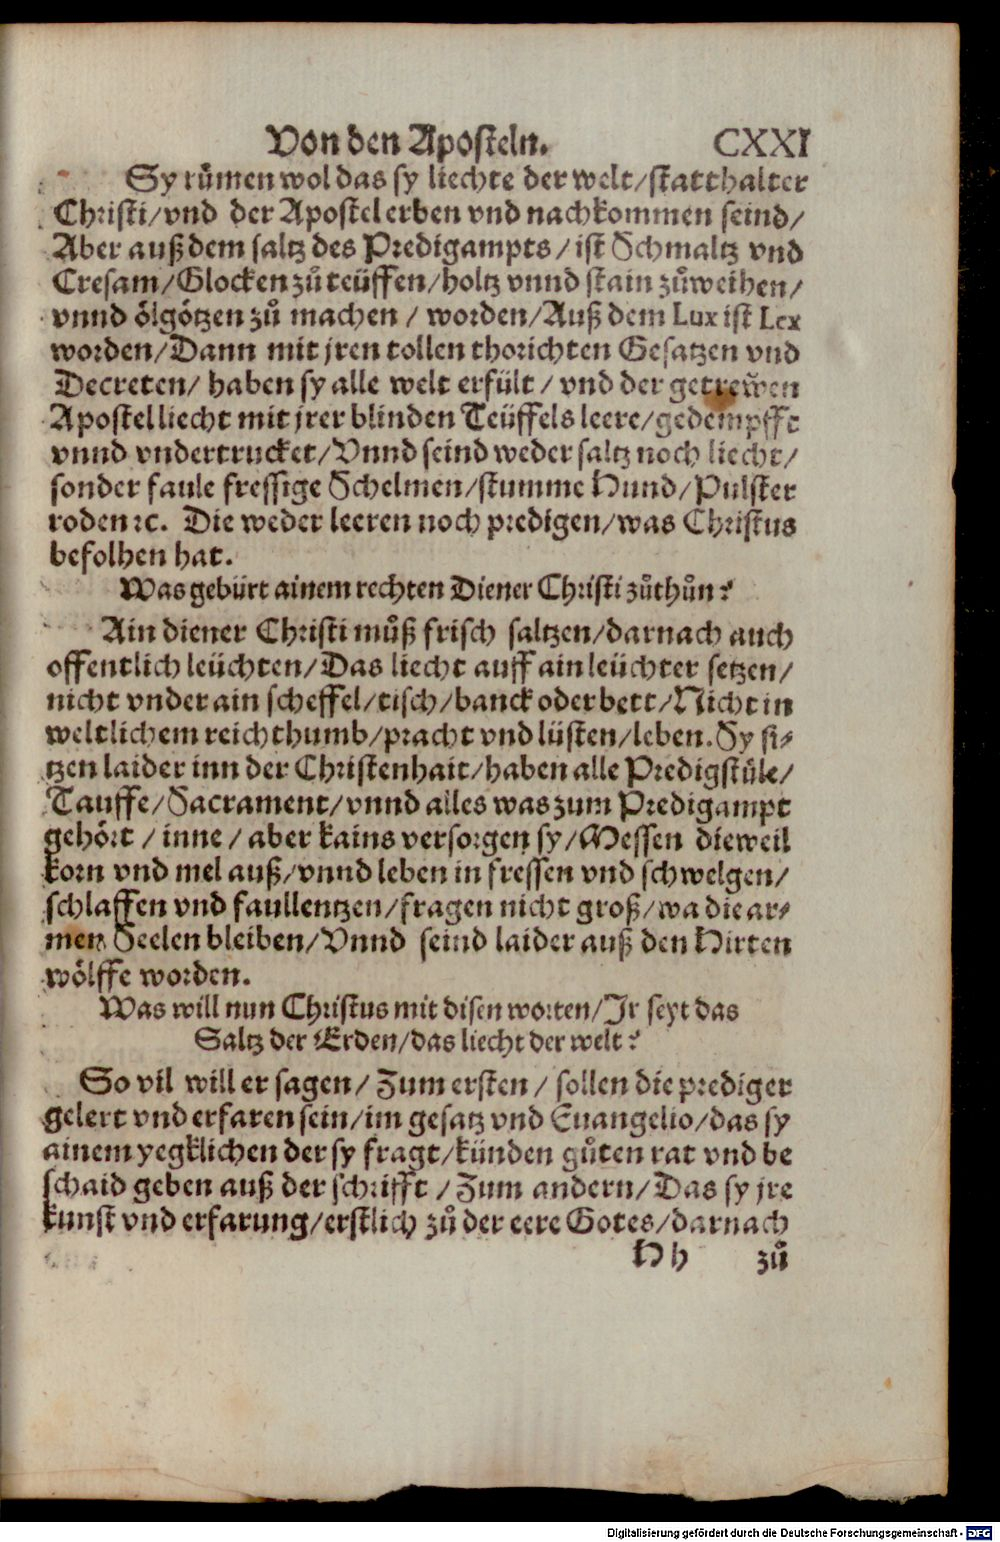 Von den Aposteln. CXXI
Sy růmen wol das sy liechte der welt/statthalter
Christi/vnd der Apostel erben vnd nachkommen seind/
Aber auß dem saltz des Predigampts/ist Schmaltz vnd
Cresam/Glocken zů teüffen/holtz vnnd stain zůweihen/
vnnd ölgötzen zů machen/worden/Auß dem Lux ist Lex
worden/Dann mit jren tollen thorichten Gesatzen vnd
Decreten/haben sy alle welt erfült/vnd der getrewen
Apostel liecht mit jrer blinden Teüffels leere/gedempfft
vnnd vndertrucket/Vnnd seind weder saltz noch liecht/
sonder faule fressige Schelmen/stumme Hund/Pulster
roden ꝛc. Die weder leeren noch predigen/was Christus
befolhen hat.
Was gebürt ainem rechten Diener Christi zůthůn?
Ain diener Christi můß frisch saltzen/darnach auch
offentlich leüchten/Das liecht auff ain leüchter setzen/
nicht vnder ain scheffel/tisch/banck oder bett/Nicht in
weltlichem reichthumb/pracht vnd lüsten/leben. Sy si-
tzen laider inn der Christenhait/haben alle Predigstüle/
Tauffe/Sacrament/vnnd alles was zum Predigampt
gehört/inne/aber kains versorgen sy/Messen dieweil
korn vnd mel auß/vnnd leben in fressen vnd schwelgen/
schlaffen vnd faullentzen/fragen nicht groß/wa die ar-
men Seelen bleiben/Vnnd seind laider auß den Hirten
wölffe worden.
Was will nun Christus mit disen worten/Jr seyt das
Saltz der Erden/das liecht der welt?
So vil will er sagen/Zum ersten/sollen die prediger
gelert vnd erfaren sein/im gesatz vnd Euangelio/das sy
ainem yegklichen der sy fragt/künden gůten rat vnd be
schaid geben auß der schrifft/Zum andern/Das sy jre
kunst vnd erfarung/erstlich zů der eere Gotes/darnach
Hh zů
Digitalisierung gefördert durch die Deutsche Forschungsgemeinschaft - DFG